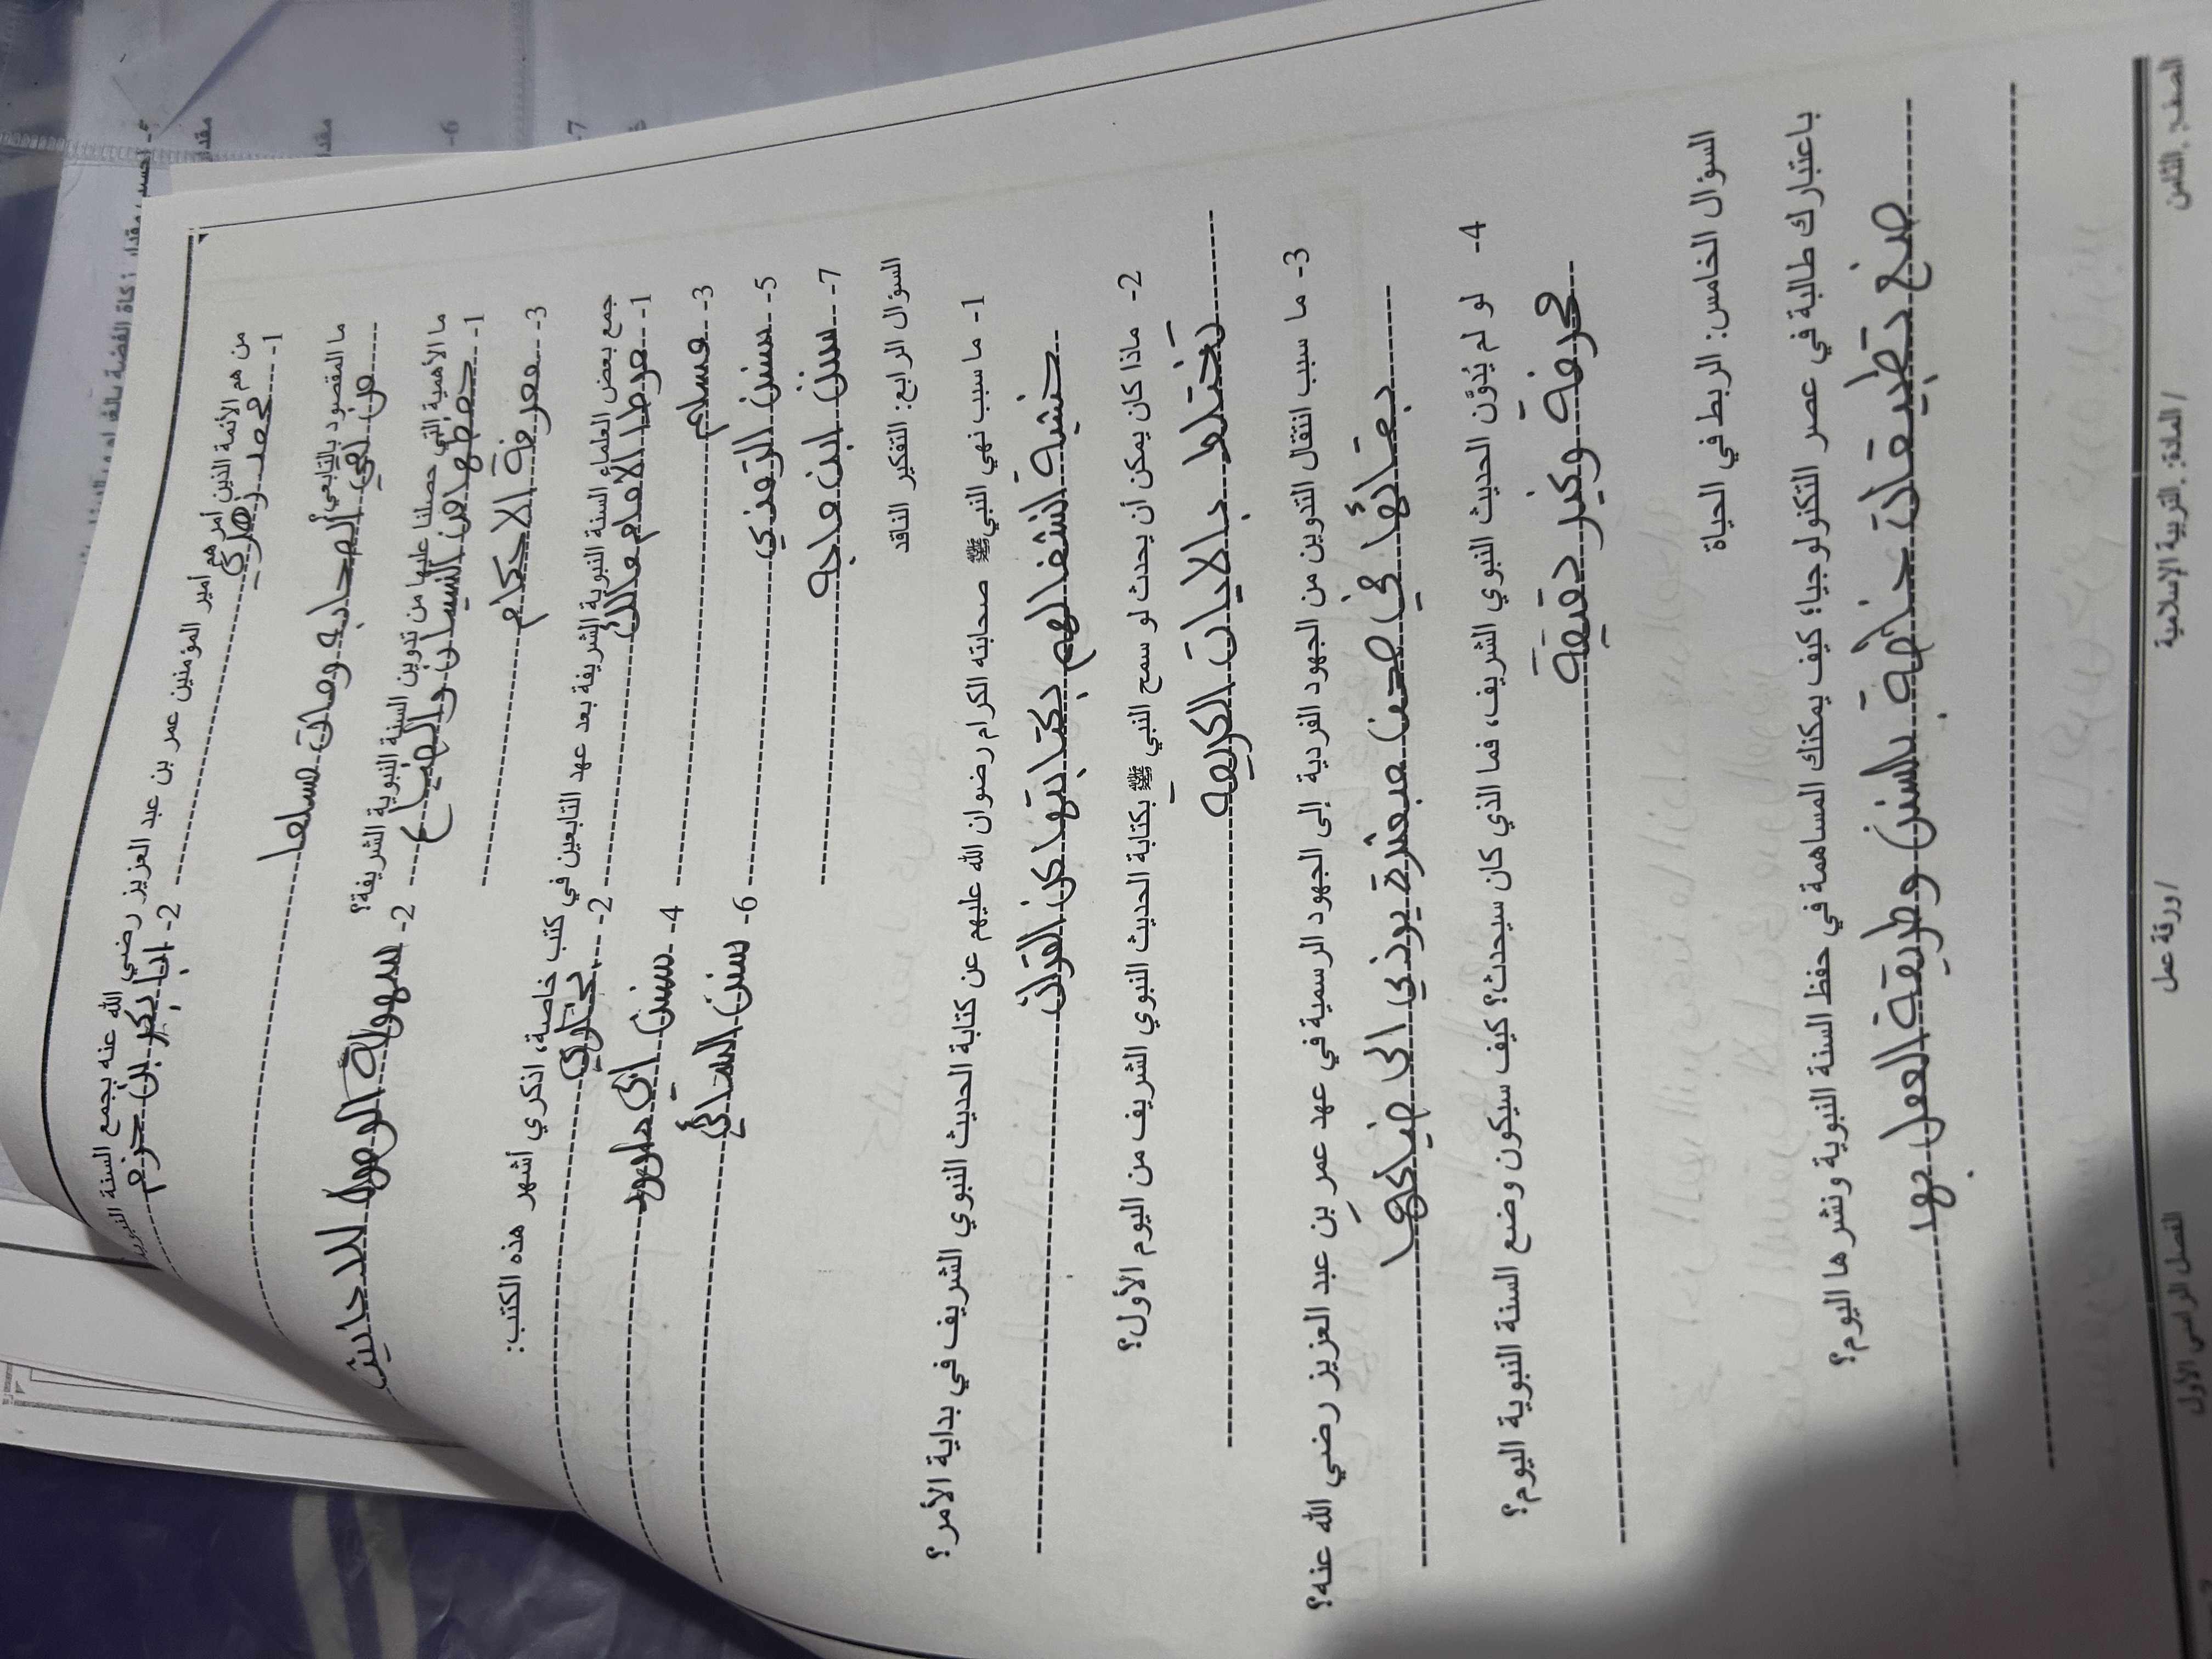 من هم الأئمة الذين أمرهم أمير المؤمنين عمر بن عبد العزيز رضي الله عنه بجمع السنة النبوية
1- محمد زهري 2- ابا بكر بن حزم
ما المقصود بالتابعي؟
من لقي الصحابه ومات مسلما
ما الأهمية التي حصلنا عليها من تدوين السنة النبوية الشريفة؟
1- حفظها من النسيان والضياع 2- سهولة الوصول للاحاديث
3- معرفة الاحكام
جمع بعض العلماء السنة النبوية الشريفة بعد عهد التابعين في كتب خاصة، اذكري أشهر هذه الكتب:
1- موطا الامام مالك 2- بخاري
3- مسلم 4- سنن أبي داوود
5- سنن الترمذي 6- سنن النسائي
7- سنن ابن ماجه
السؤال الرابع: التفكير الناقد
1- ما سبب نهي النبي ﷺ صحابته الكرام رضوان الله عليهم عن كتابة الحديث النبوي الشريف في بداية الأمر؟
خشية انشغالهم بكتابتها عن القرآن
2- ماذا كان يمكن أن يحدث لو سمح النبي ﷺ بكتابة الحديث النبوي الشريف من اليوم الأول؟
تختلط بالايات الكريمه
3- ما سبب انتقال التدوين من الجهود الفردية إلى الجهود الرسمية في عهد عمر بن عبد العزيز رضي الله عنه؟
بقائها في صحف مبعثرة يودي الى ضياعها
4- لو لم يُدوَّن الحديث النبوي الشريف، فما الذي كان سيحدث؟ كيف سيكون وضع السنة النبوية اليوم؟
محرفة وغير دقيقة
السؤال الخامس: الربط في الحياة
باعتبارك طالبة في عصر التكنولوجيا؛ كيف يمكنك المساهمة في حفظ السنة النبوية ونشرها اليوم؟
صنع تطبيقات خاصة بالسنن وطريقة العمل بها
الصف: الثامن / المادة: التربية الإسلامية / ورقة عمل الفصل الدراسي الأول